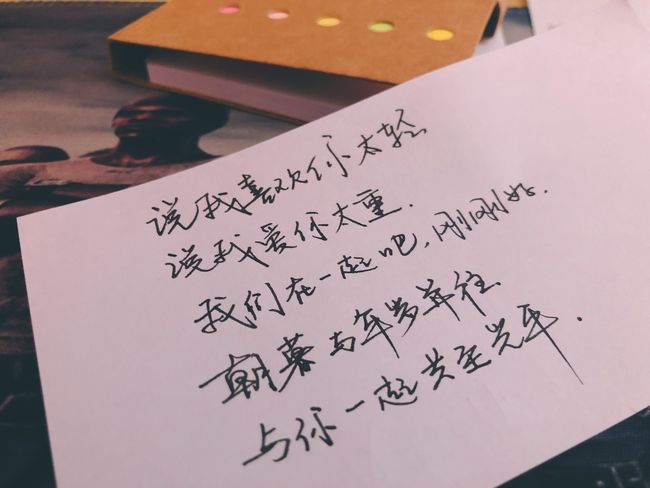 说我喜欢你太轻
说我爱你太重.
我们在一起吧,刚刚好.
朝暮与年岁并往
与你一起共至光年.